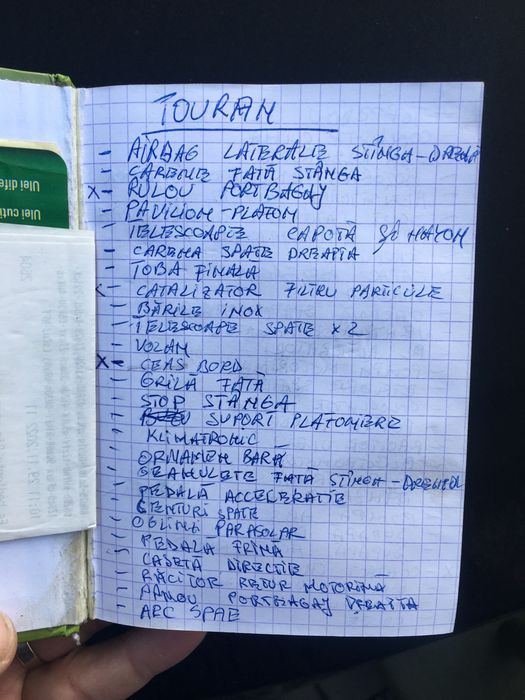 TOURAN
- AIRBAG LATERALE STÎNGA-DREAPTA
- CARENE FAȚĂ STÂNGA
x- RULOU PORTBAGAY
- PAVILION-PLAFON
- TELESCOAPE CAPOTĂ ȘI HAYON
- CARENA SPATE DREAPTA
- TOBA FINALA
- CATALIZATOR FILTRU PARTICULE
- BĂRILE INOX
- TELESCOAPE SPATE x 2
- VOLAN
x- CEAS BORD
- GRILĂ FAȚĂ
- STOP STÂNGA
- SUPORT PLAFONIERE
- KLIMATRONIC
- ORNAMEN BARĂ
- GEAMULEȚE FAȚĂ STÎNGA-DREAPTA
- PEDALĂ ACCELERAȚIE
- CENTURI SPATE
- OGLINĂ PARASOLAR
- PEDALĂ FRINA
- CASETĂ DIRECȚIE
- RĂCITOR RETUR MOTORINĂ
- PANOU PORTBAGAY DREAPTA
- ARC SPAE
Ulei cuti
Ulei dife